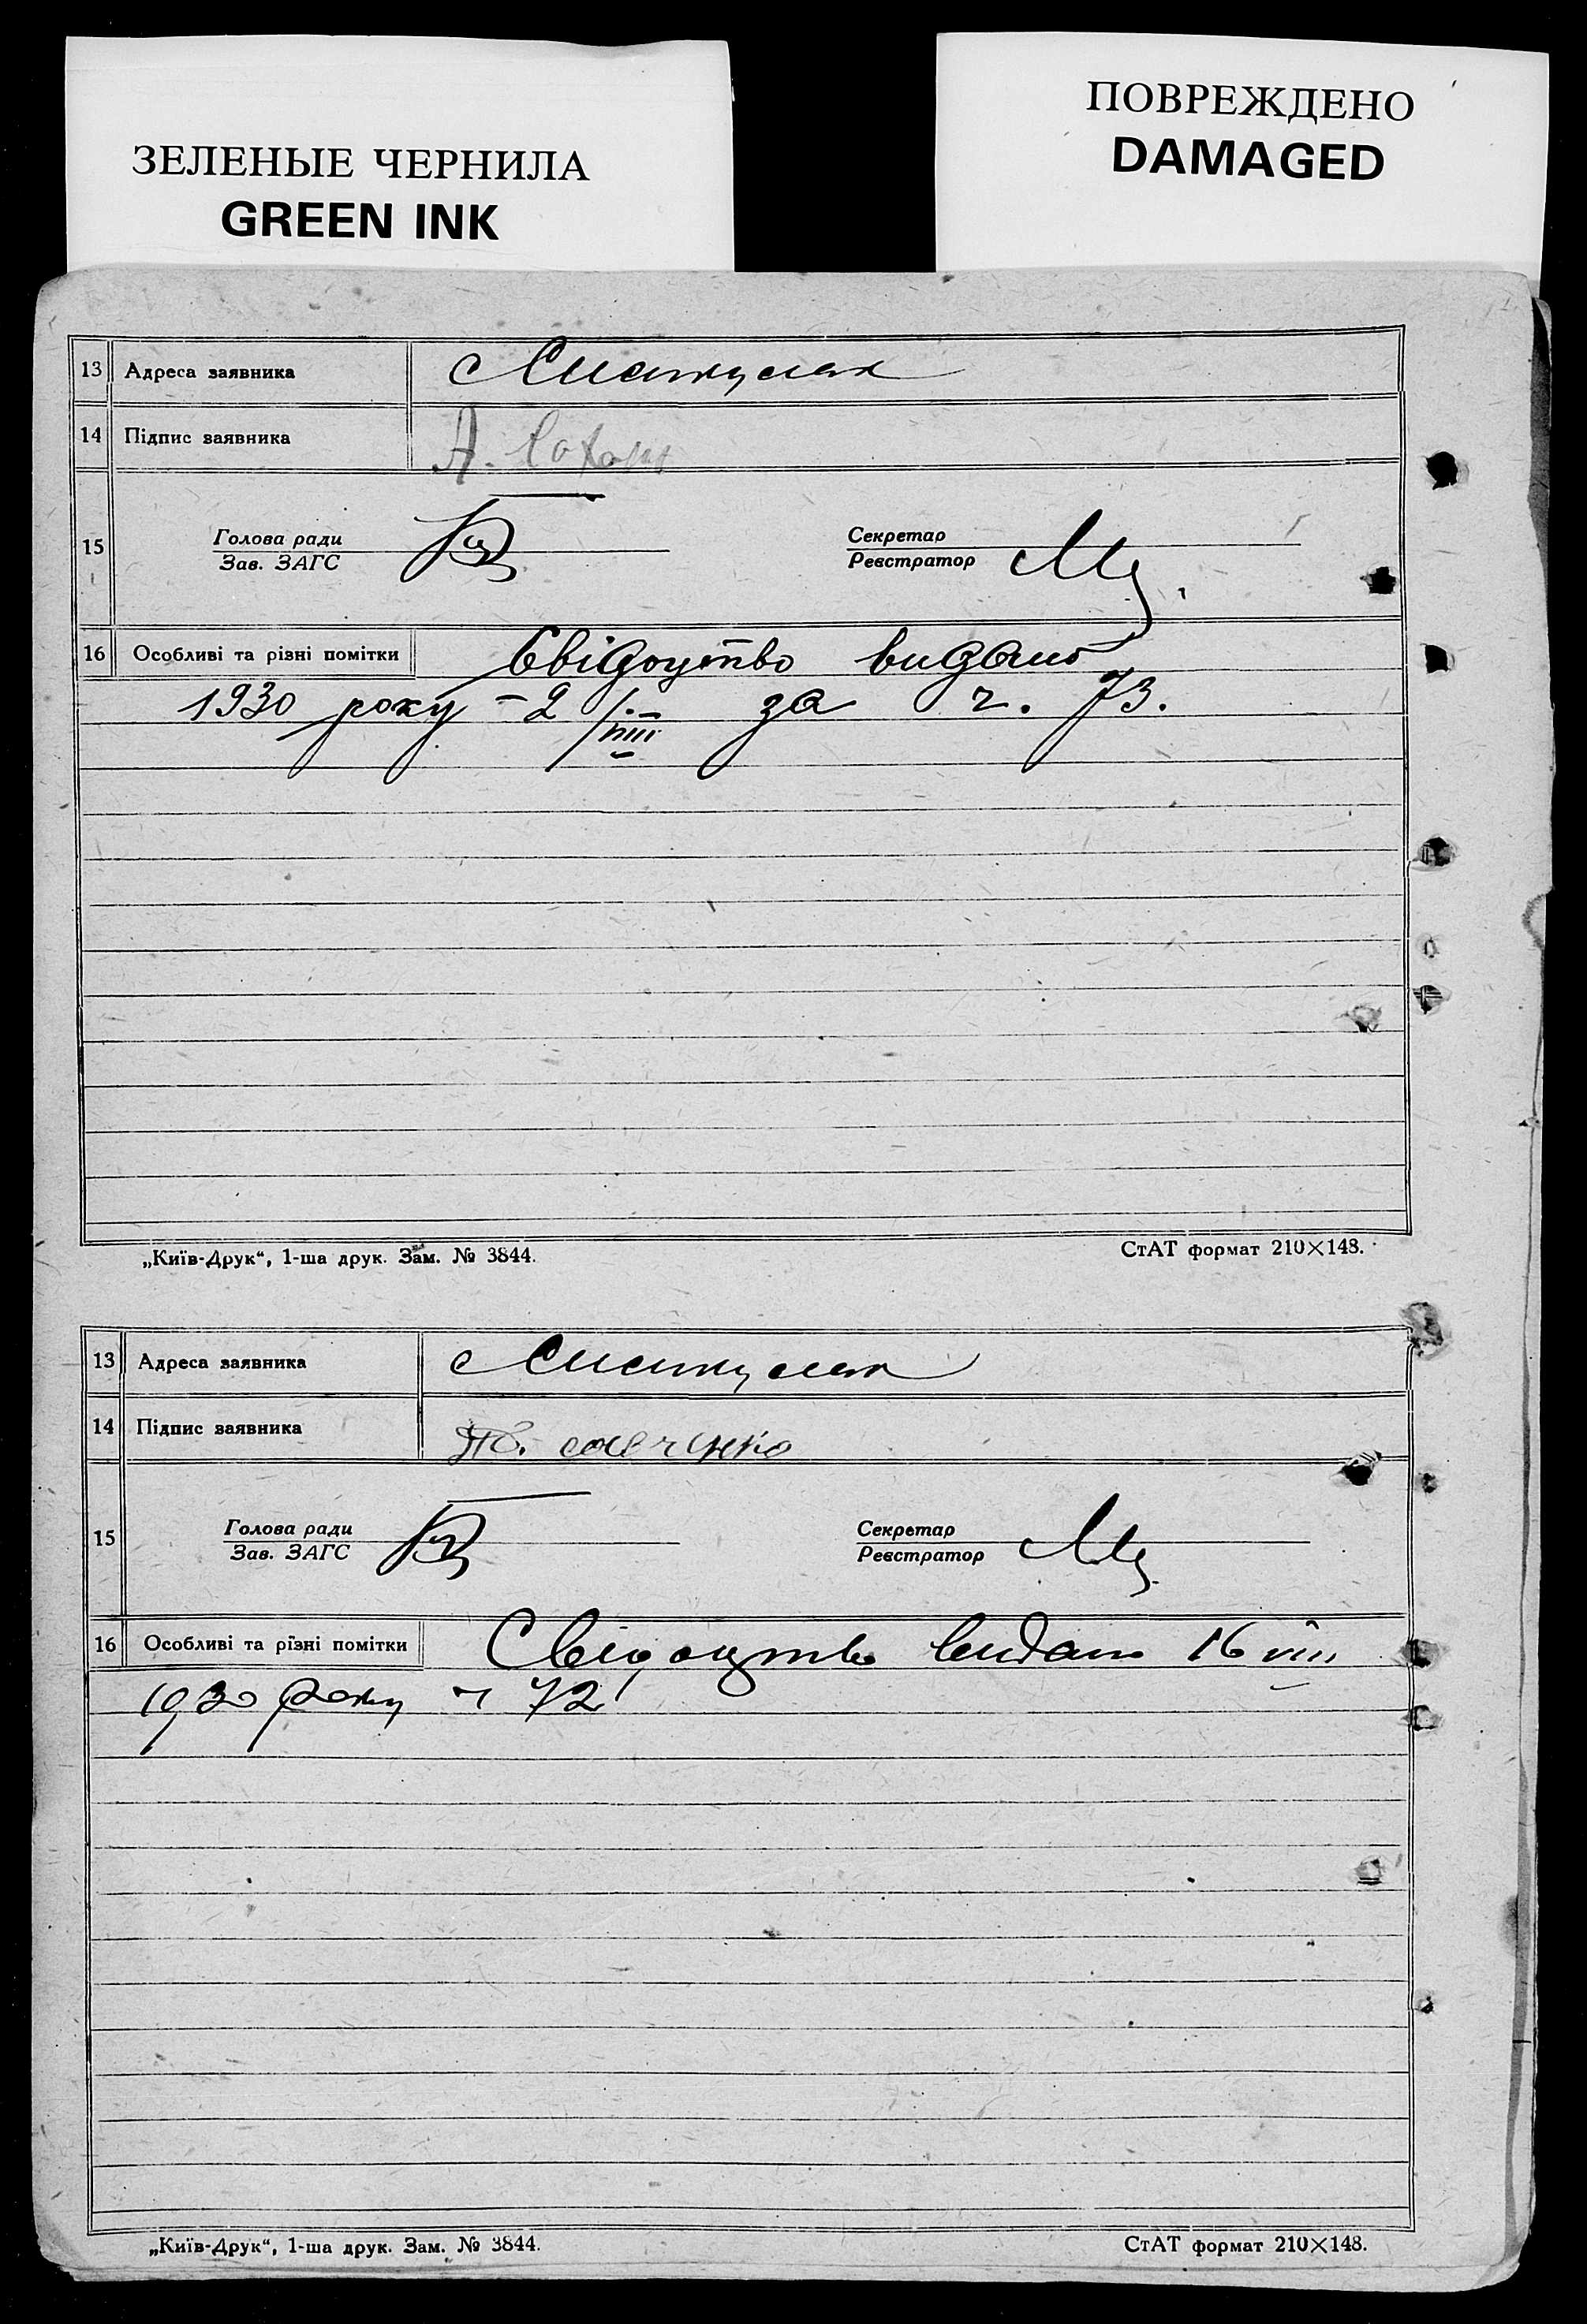 ЗЕЛЕНЫЕ ЧЕРНИЛА
GREEN INK
ПОВРЕЖДЕНО
DAMAGED
13 Адреса заявника с
14 Підпис заявника А.
15 Голова ради Секретар
Зав. ЗАГС Реєстратор
16 Особливі та різні помітки Свідоцтво видано
1930 року – 2/VIII за ч. 73.
„Київ-Друк“, 1-ша друк. Зам. № 3844. СтАТ формат 210×148.
13 Адреса заявника с
14 Підпис заявника савченко
15 Голова ради Секретар
Зав. ЗАГС Реєстратор
16 Особливі та різні помітки Свідоцтво видано 16 VIII
1930 року ч 72
„Київ-Друк“, 1-ша друк. Зам. № 3844. СтАТ формат 210×148.